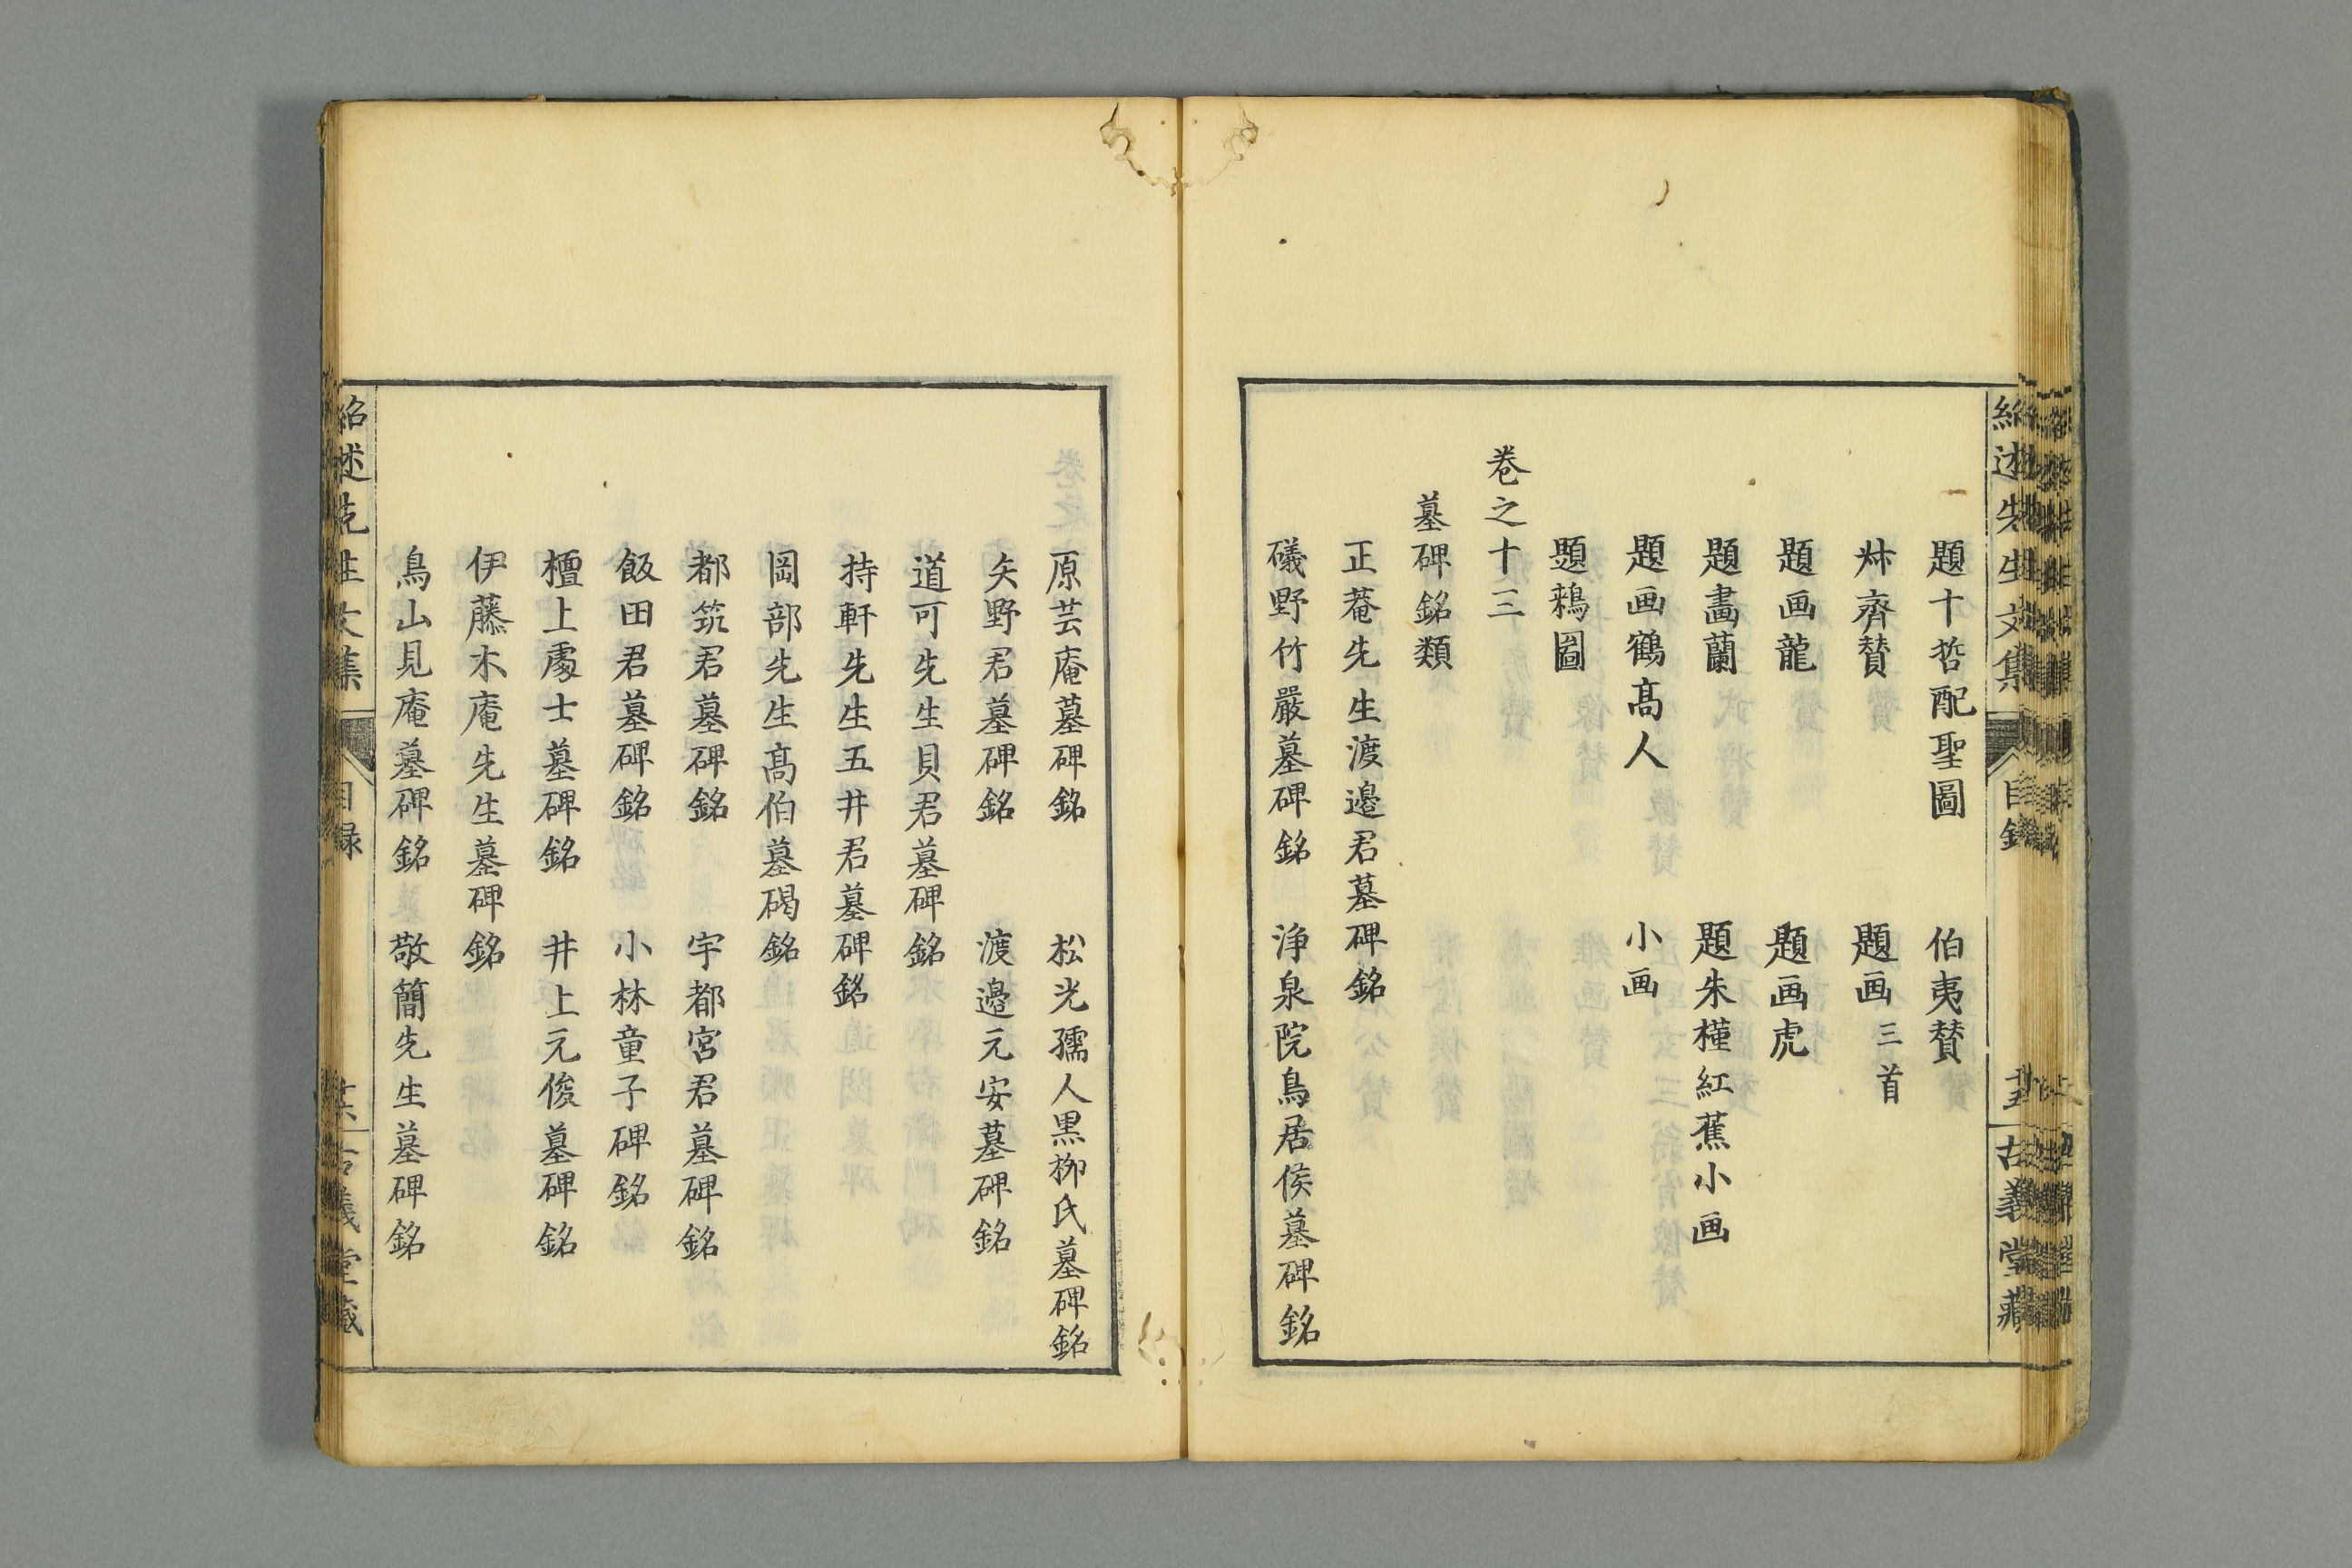 紹述先生文集 目錄 古義堂藏
題十哲配聖圖 伯夷賛
叔齊賛 題画三首
題画龍 題画虎
題畫蘭 題朱槿紅蕉小画
題画鶴髙人 小画
題鶏圖
卷之十三
墓碑銘類
正菴先生渡邉君墓碑銘
礒野竹嚴墓碑銘 浄泉院鳥居侯墓碑銘
原芸庵墓碑銘 松光孺人黒栁氏墓碑銘
矢野君墓碑銘 渡邉元安墓碑銘
道可先生貝君墓碑銘
持軒先生五井君墓碑銘
岡部先生髙伯墓碣銘
都筑君墓碑銘 宇都宮君墓碑銘
飯田君墓碑銘 小林童子碑銘
檀上處士墓碑銘 井上元俊墓碑銘
伊藤木庵先生墓碑銘
鳥山見庵墓碑銘 敬簡先生墓碑銘
紹述先生文集 目録 古義堂藏